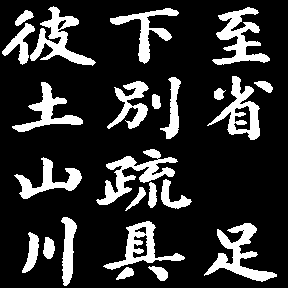 至省 足
下別疏具
彼土山川